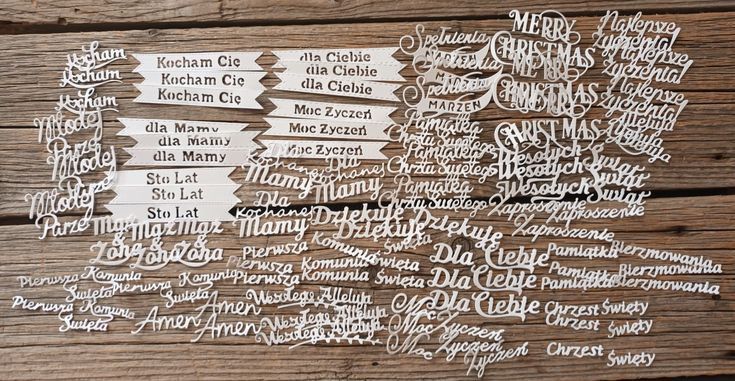 Kocham
Kocham
Kocham
Kocham Cię
Kocham Cię
Kocham Cię
dla Ciebie
dla Ciebie
dla Ciebie
Spełnienia
Spełnienia
Spełnienia
MARZEŃ
MERRY
CHRISTMAS
CHRISTMAS
CHRISTMAS
Najlepsze
Życzenia!
Najlepsze
Młodej
Parze
Młodej
Młodej
Parze
dla Mamy
dla Mamy
dla Mamy
Moc Życzeń
Moc Życzeń
Moc Życzeń
Sto Lat
Sto Lat
Sto Lat
Dla
Kochanej
Mamy
Dla
Kochanej
Mamy
Pamiątka
Chrztu Świętego
Pamiątka
Chrztu Świętego
Wesołych Świąt
Wesołych Świąt
Zaproszenie
Zaproszenie
Mąż Mąż Mąż
&
Żona Żona Żona
Dziękuję
Dziękuję
Dziękuję
Dziękuję
Pierwsza Komunia Święta
Pierwsza Komunia Święta
Dla Ciebie
Dla Ciebie
Dla Ciebie
Pamiątka Bierzmowania
Pamiątka Bierzmowania
Pamiątka Bierzmowania
Pierwsza Komunia
Święta
Pierwsza Komunia
Święta
Pierwsza Komunia
Święta
Amen
Amen
Amen
Amen
Wesołego Alleluja
Wesołego Alleluja
Wesołego Alleluja
Moc Życzeń
Moc Życzeń
Moc Życzeń
Chrzest Święty
Chrzest Święty
Chrzest Święty